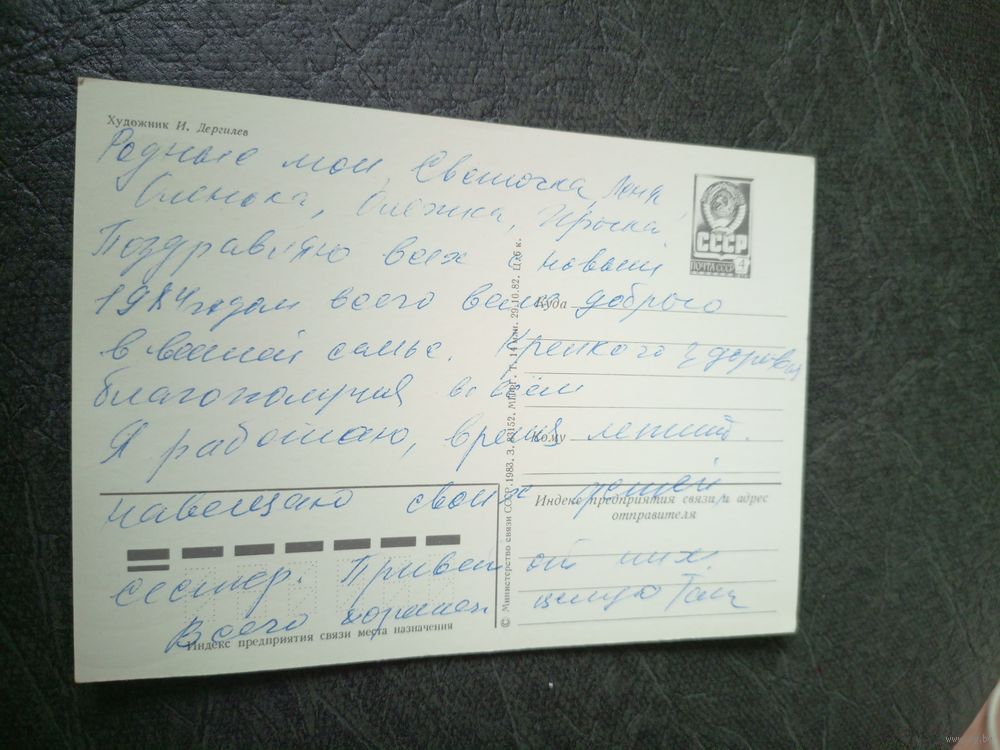 Художник И. Дергилев
Родные мои, Светочка, Лена
Оленька, Олежка, Ирочка
Поздравляю всех с новым
1984 годом всего вам доброго
в вашей семье. Крепкого здоровья
благополучия во всём
Я работаю, время летит.
навещаю своих детей,
сестер. Привет от них.
Всего хорошего целую Таня
СССР
ПОЧТА СССР 4
Куда
Кому
Индекс предприятия связи и адрес
отправителя
Индекс предприятия связи места назначения
© Министерство связи СССР. 1983. З. 83152. МПФГ. Т. 14 млн. 29.10.82. Ц. 6 к.